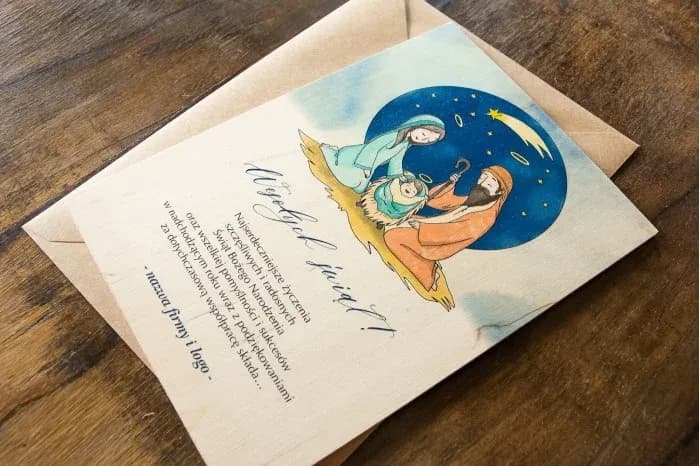 Wesołych świąt!
Najserdeczniejsze życzenia
szczęśliwych i radosnych
Świąt Bożego Narodzenia
oraz wszelkiej pomyślności i sukcesów
w nadchodzącym roku wraz z podziękowaniami
za dotychczasową współpracę składa...
- nazwa firmy i logo -